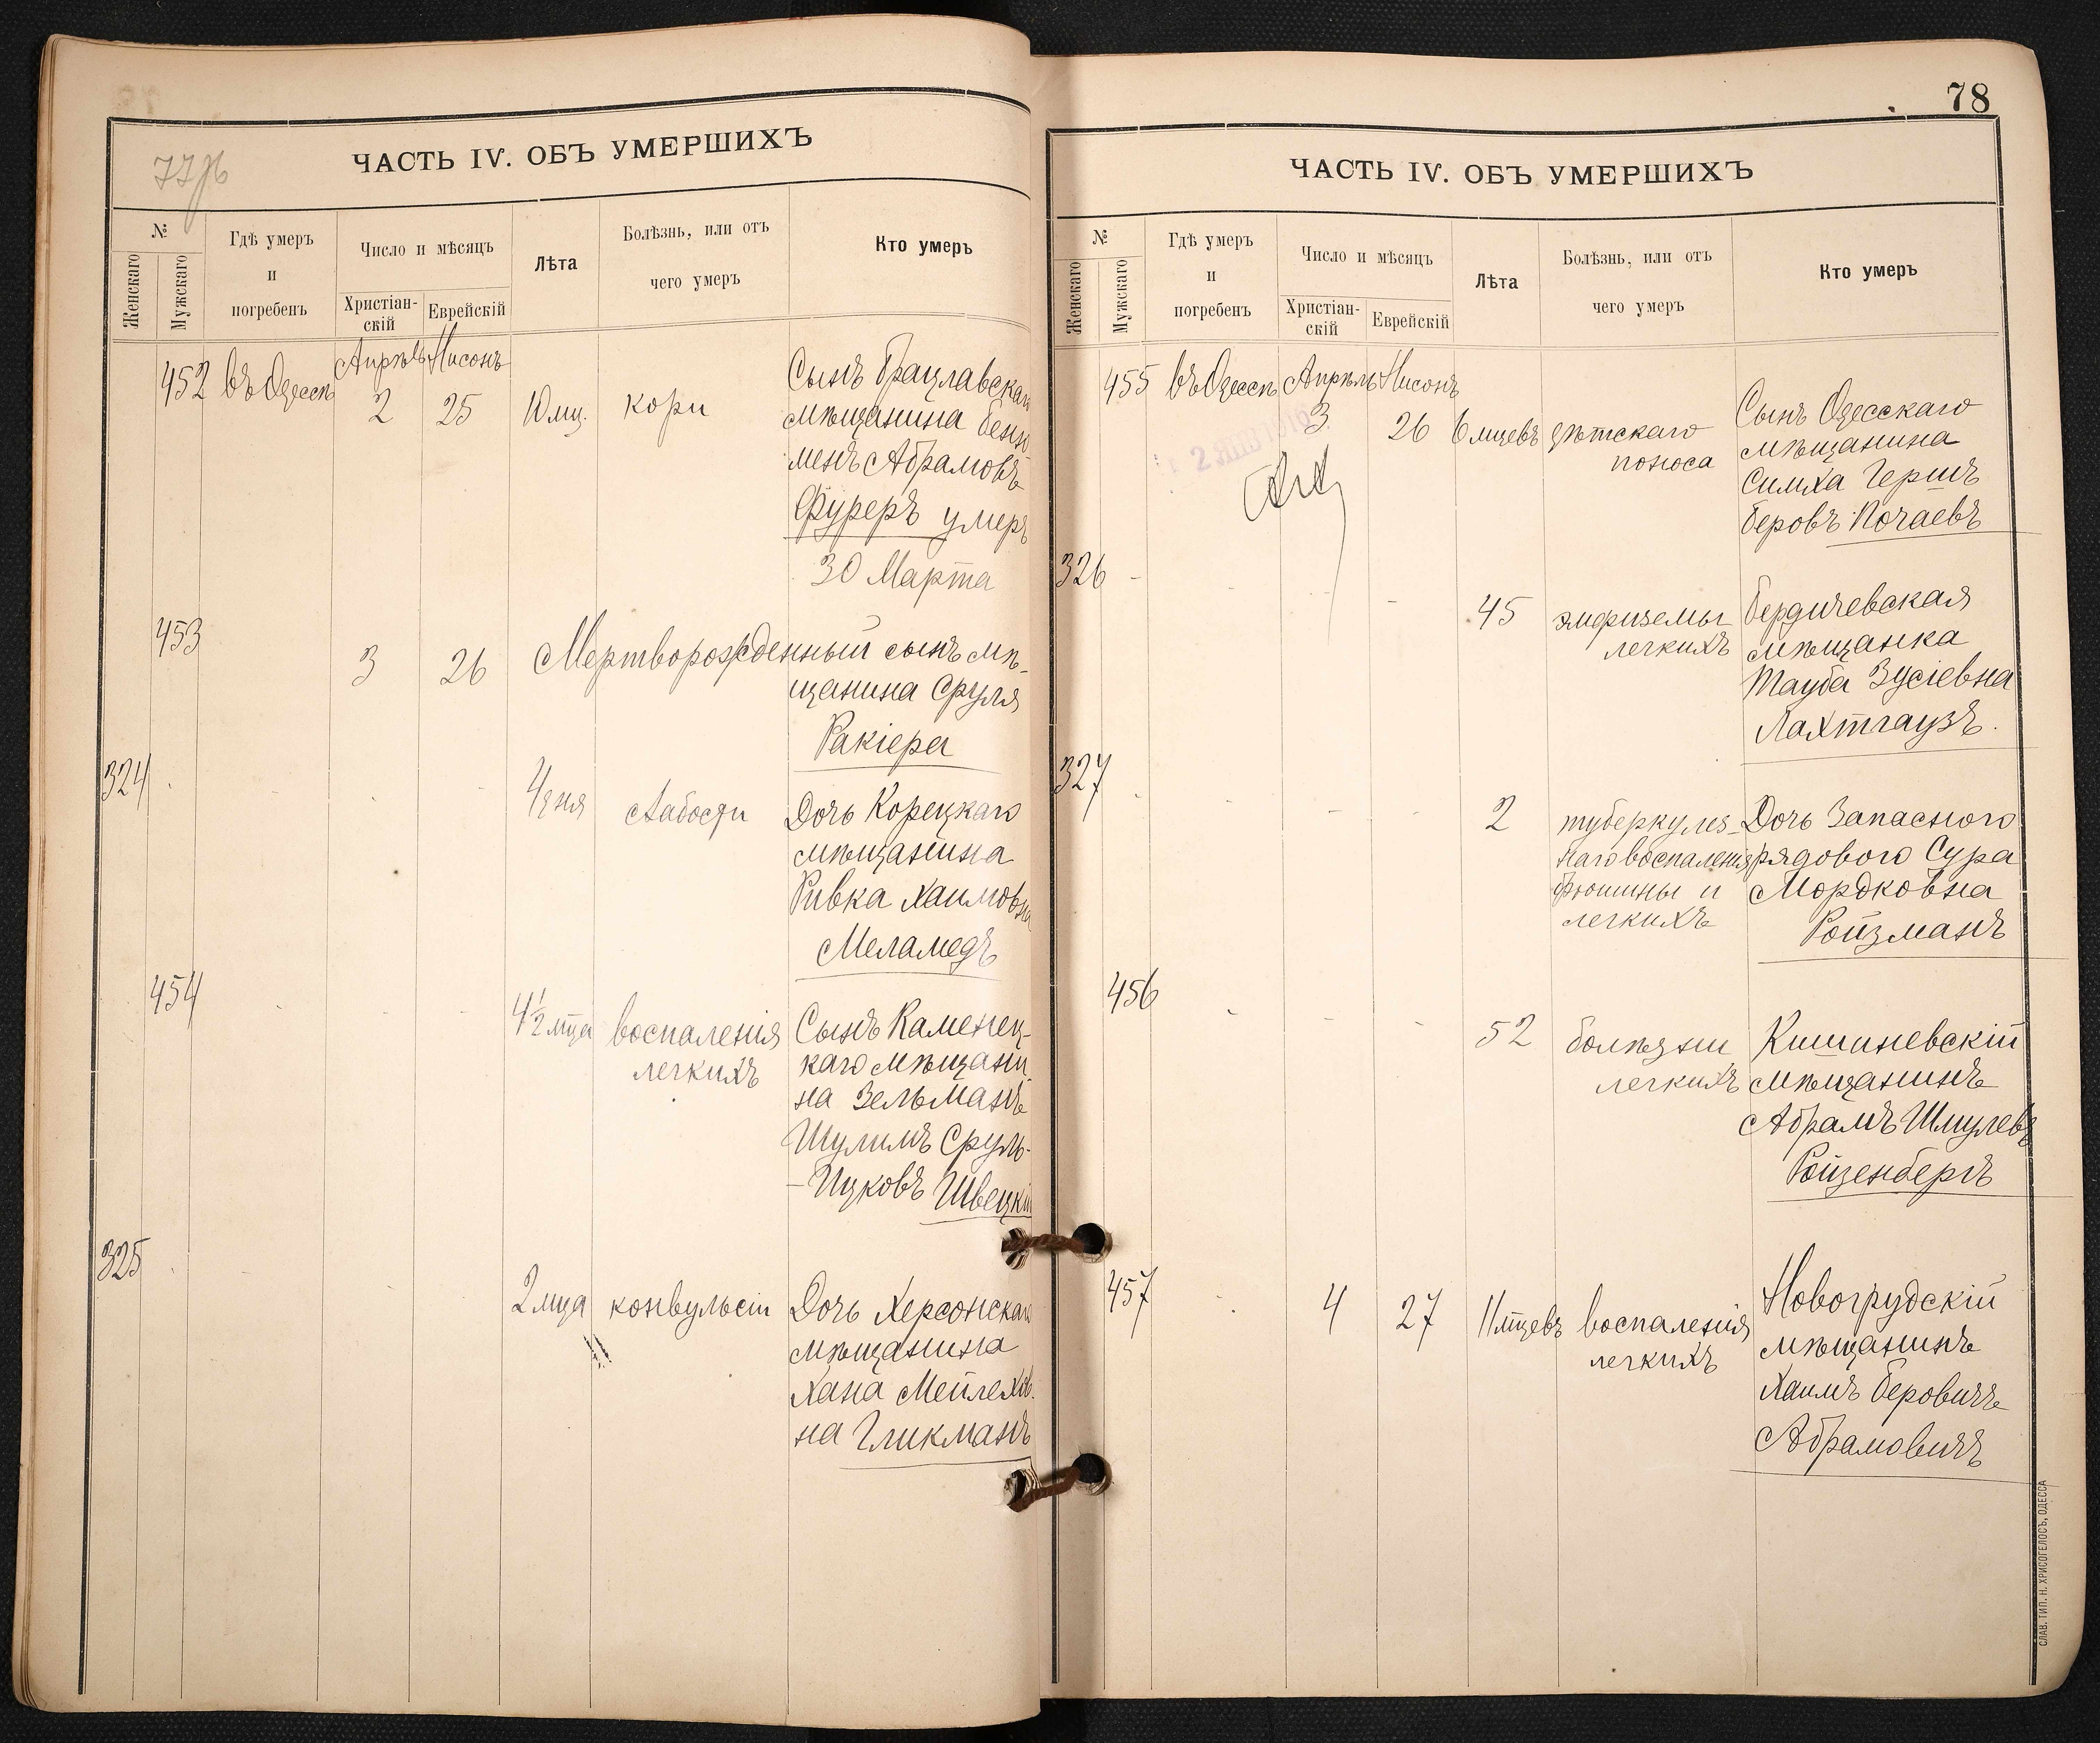 77об
ЧАСТЬ IV. ОБЪ УМЕРШИХЪ
№
Женскаго
Мужскаго
Гдѣ умеръ
и
погребенъ
Число и мѣсяцъ
Христіан-
скій
Еврейскій
Лѣта
Болѣзнь, или отъ
чего умеръ
Кто умеръ
452 въ Одессѣ Апрѣль Нисонъ
2 25 10 мц. кори
Сынъ Брацлавскаго
мѣщанина Бенъ
менъ Абрамовъ
Фуреръ умеръ
30 Марта
453
3 26 Мертворожденный сынъ мѣ-
щанина Сруля
Ракіера
324
4 дня слабости Дочь Корецкаго
мѣщанина
Ривка Хаимовна
Меламедъ
454
4½ мца воспаленія Сынъ Каменец-
легкихъ каго мѣщани-
на Зельманъ
Шулимъ Сруль-
-Ицковъ Швецкій
325
2 мца конвульсіи Дочь Херсонскаго
мѣщанина
Хана Мейлехов-
на Гликманъ
78
ЧАСТЬ IV. ОБЪ УМЕРШИХЪ
№
Женскаго
Мужскаго
Гдѣ умеръ
и
погребенъ
Число и мѣсяцъ
Христіан-
скій
Еврейскій
Лѣта
Болѣзнь, или отъ
чего умеръ
Кто умеръ
455 въ Одессѣ Апрѣль Нисонъ
3 26 6 мцевъ дѣтскаго Сынъ Одесскаго
поноса мѣщанина
Симха Гершъ
Беровъ Почаевъ
326
45 эмфиземы Бердичевская
легкихъ мѣщанка
Тауба Зусіевна
Лахтгаузъ.
327
2 туберкулез- Дочь Запаснаго
наго воспаленія рядового Сура
брюшины и Мордковна
легкихъ Ройзманъ
456
52 болѣзни Кишиневскій
легкихъ мѣщанинъ
Абрамъ Шмулевъ
Ройзенбергъ
457
4 27 11 мцевъ воспаленія Новогрудскій
легкихъ мѣщанинъ
Хаимъ Беровичъ
Абрамовичъ
СЛАВ. ТИП. Н. ХРИСОГЕЛОСЪ, ОДЕССА